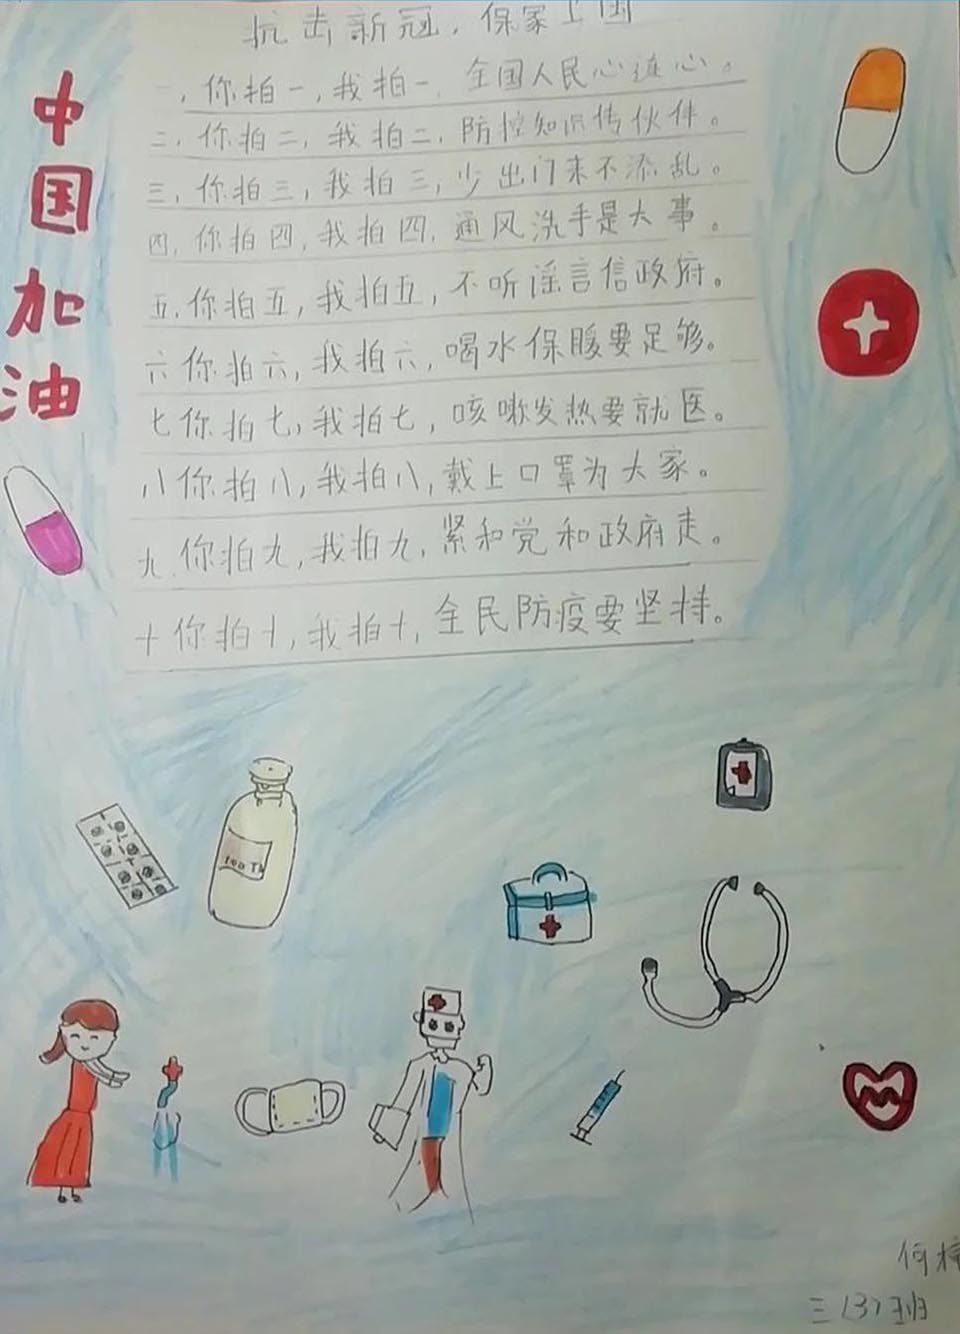 抗击新冠，保家卫国
中国加油
一，你拍一，我拍一，全国人民心连心。
二，你拍二，我拍二，防控知识传伙伴。
三，你拍三，我拍三，少出门来不添乱。
四，你拍四，我拍四，通风洗手是大事。
五，你拍五，我拍五，不听谣言信政府。
六你拍六，我拍六，喝水保暖要足够。
七你拍七，我拍七，咳嗽发热要就医。
八你拍八，我拍八，戴上口罩为大家。
九，你拍九，我拍九，紧和党和政府走。
十你拍十，我拍十，全民防疫要坚持。
何
三(3)班